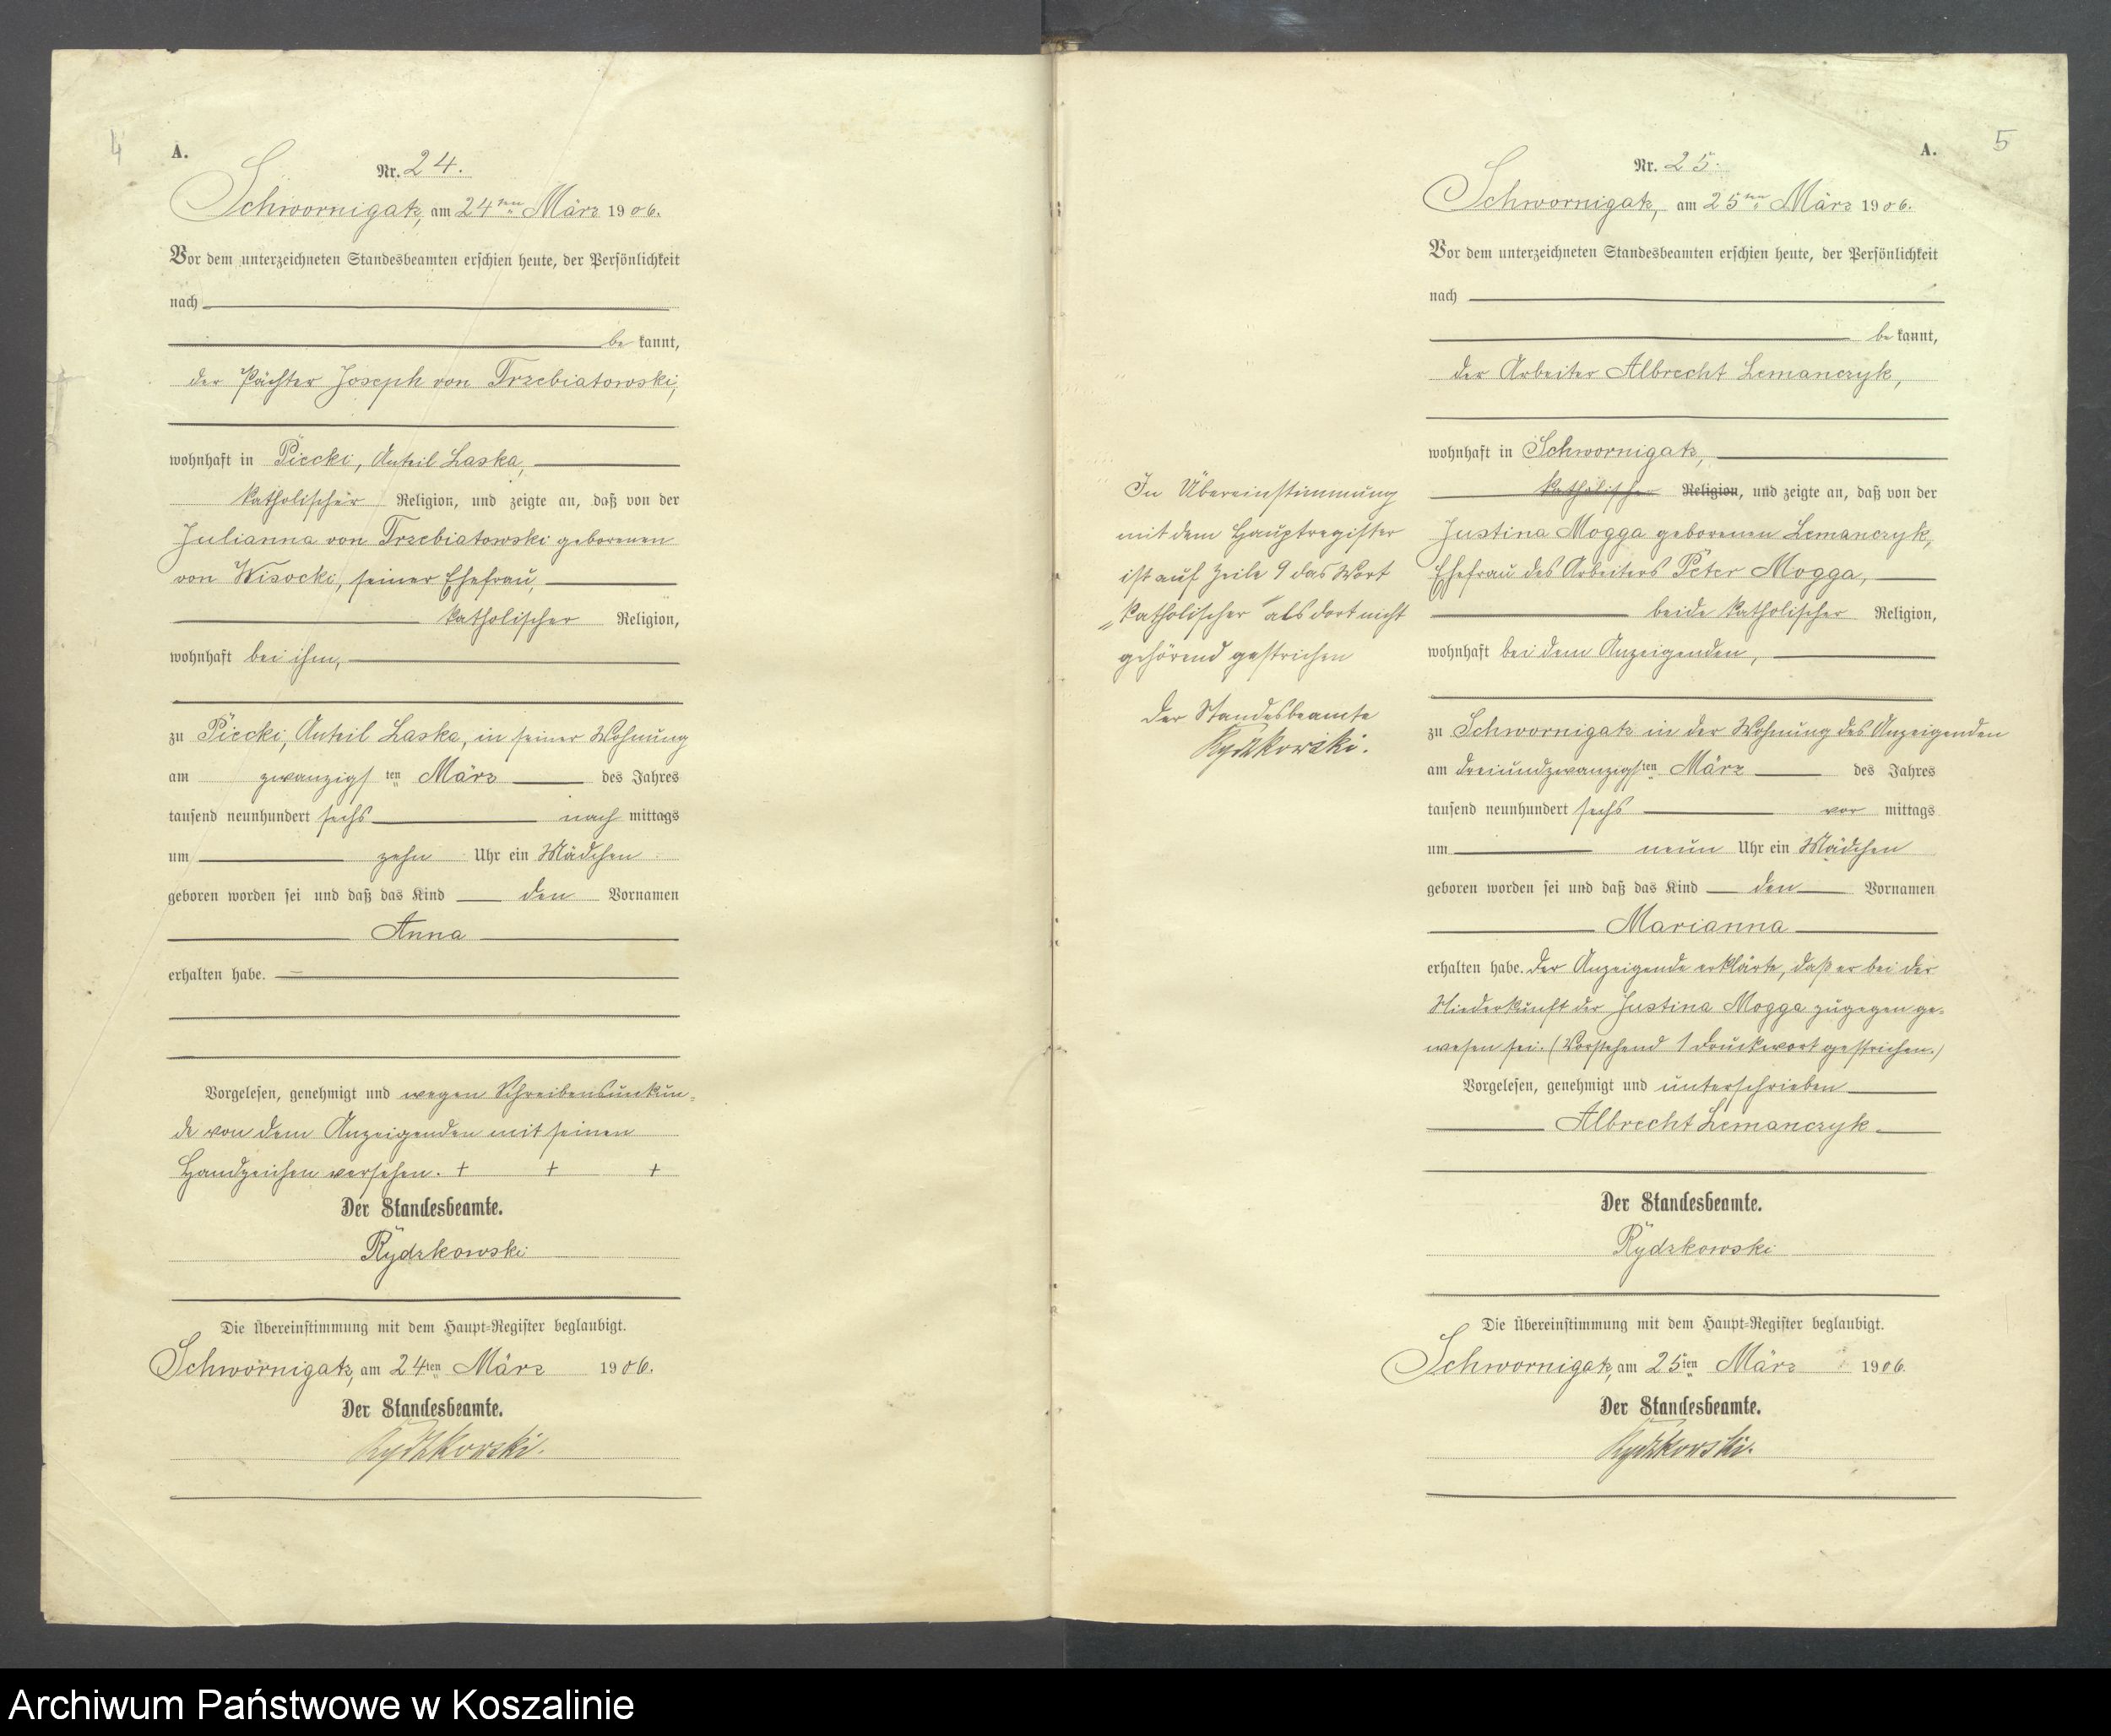 4
A.
Nr. 24.
Schwornigatz, am 24ten März 1906.
Vor dem unterzeichneten Standesbeamten erschien heute, der Persönlichkeit
nach
be kannt,
der Pächter Joseph von Trzebiatowski,
wohnhaft in Piecki, Anteil Laska,
katholischer Religion, und zeigte an, daß von der
Julianna von Trzebiatowski geborenen
von Wisocki, seiner Ehefrau,
katholischer Religion,
wohnhaft bei ihm,
zu Piecki, Anteil Laska, in seiner Wohnung
am zwanzigsten März des Jahres
tausend neunhundert sechs nach mittags
um zehn Uhr ein Mädchen
geboren worden sei und daß das Kind den Vornamen
Anna
erhalten habe.
Vorgelesen, genehmigt und wegen Schreibensunkun-
de von dem Anzeigenden mit seinen
Handzeichen versehen. + + +
Der Standesbeamte.
Rydzkowski
Die Übereinstimmung mit dem Haupt-Register beglaubigt.
Schwornigatz, am 24ten März 1906.
Der Standesbeamte.
Rydzkowski.
5
A.
Nr. 25.
Schwornigatz, am 25ten März 1906.
Vor dem unterzeichneten Standesbeamten erschien heute, der Persönlichkeit
nach
be kannt,
der Arbeiter Albrecht Lemanczyk,
wohnhaft in Schwornigatz,
katholischer Religion, und zeigte an, daß von der
Justina Mogga geborenen Lemanczyk,
Ehefrau des Arbeiters Peter Mogga,
beide katholischer Religion,
wohnhaft bei dem Anzeigenden,
zu Schwornigatz in der Wohnung des Anzeigenden
am dreiundzwanzigsten März des Jahres
tausend neunhundert sechs vor mittags
um neun Uhr ein Mädchen
geboren worden sei und daß das Kind den Vornamen
Marianna
erhalten habe. Der Anzeigende erklärte, daß er bei der
Niederkunft der Justina Mogga zugegen ge-
wesen sei. (Vorstehend 1 Druckwort gestrichen.)
Vorgelesen, genehmigt und unterschrieben
Albrecht Lemanczyk.
Der Standesbeamte.
Rydzkowski
Die Übereinstimmung mit dem Haupt-Register beglaubigt.
Schwornigatz, am 25ten März 1906.
Der Standesbeamte.
Rydzkowski.
In Übereinstimmung
mit dem Hauptregister
ist auf Zeile 9 das Wort
„katholischer“ als dort nicht
gehörend gestrichen
Der Standesbeamte
Rydzkowski.
Archiwum Państwowe w Koszalinie